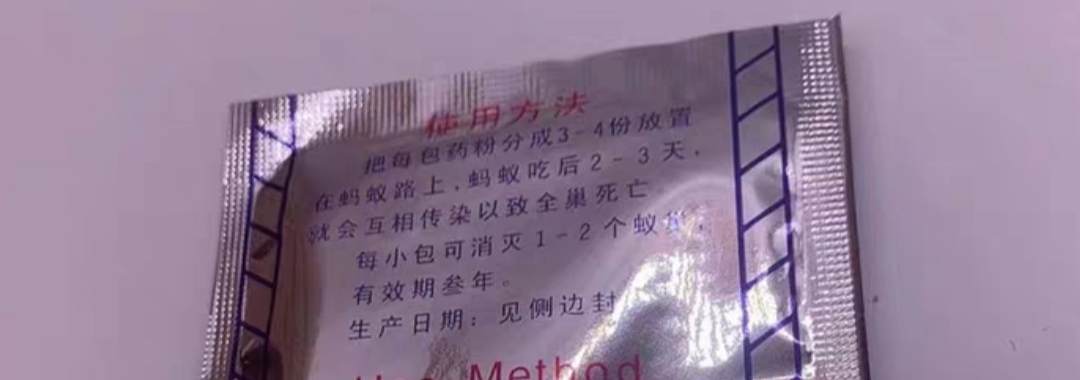 使用方法
把每包药粉分成3-4份放置
在蚂蚁路上,蚂蚁吃后2-3天,
就会互相传染以致全巢死亡
每小包可消灭1-2个蚁巢,
有效期叁年。
生产日期:见侧边封
Use Method